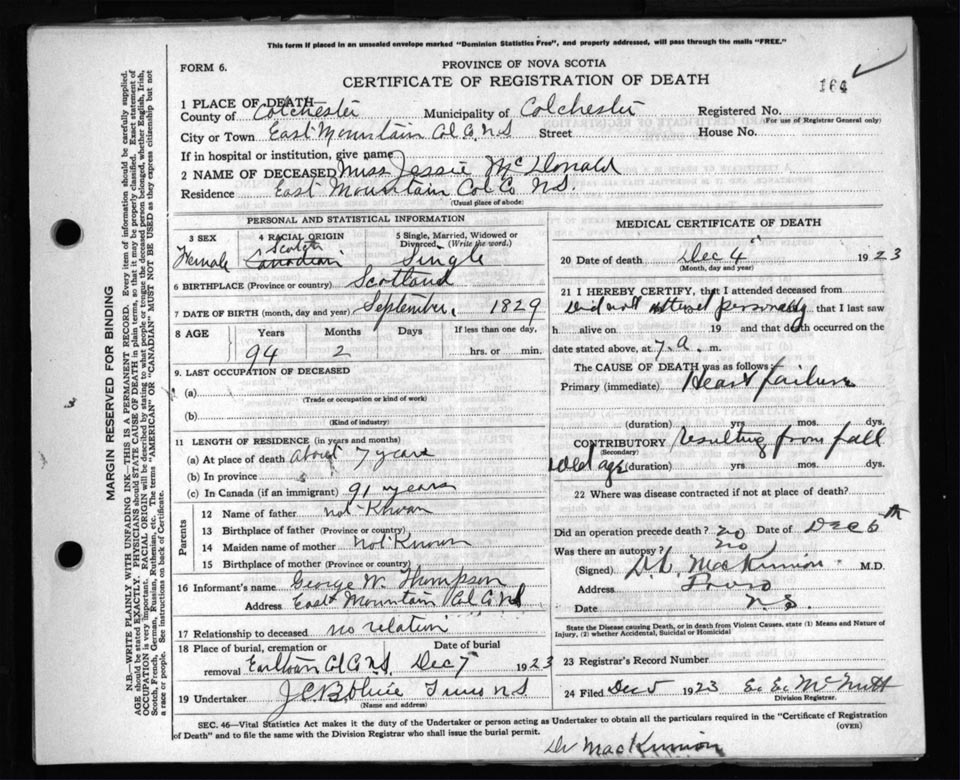 This form if placed in an unsealed envelope marked "Dominion Statistics Free", and properly addressed, will pass through the mails "FREE."
FORM 6.
PROVINCE OF NOVA SCOTIA
CERTIFICATE OF REGISTRATION OF DEATH
164
1 PLACE OF DEATH—
County of Colchester Municipality of Colchester Registered No.
(For use of Registrar General only)
City or Town East Mountain Col Co. N S Street House No.
If in hospital or institution, give name
2 NAME OF DECEASED Miss Jessie McDonald
Residence East Mountain Col Co N.S.
(Usual place of abode)
PERSONAL AND STATISTICAL INFORMATION
3 SEX 4 RACIAL ORIGIN 5 Single, Married, Widowed or Divorced. (Write the word.)
Female Scotch Canadian Single
6 BIRTHPLACE (Province or country) Scotland
7 DATE OF BIRTH (month, day and year) September, 1829
8 AGE Years Months Days If less than one day,
94 2 hrs. or min.
9. LAST OCCUPATION OF DECEASED
(a)
(Trade or occupation or kind of work)
(b)
(Kind of industry)
11 LENGTH OF RESIDENCE (in years and months)
(a) At place of death about 7 years
(b) In province
(c) In Canada (if an immigrant) 91 years
Parents
12 Name of father not Known
13 Birthplace of father (Province or country)
14 Maiden name of mother Not Known
15 Birthplace of mother (Province or country)
16 Informant's name George W. Thompson
Address East Mountain Col Co N S
17 Relationship to deceased no relation
18 Place of burial, cremation or removal Date of burial
Earltown Col Co N.S. Dec 7 1923
19 Undertaker Truro N S
(Name and address)
MEDICAL CERTIFICATE OF DEATH
20 Date of death Dec 4 1923
(Month, day and year)
21 I HEREBY CERTIFY, that I attended deceased from
Did not attend personally that I last saw
h alive on 19 and that death occurred on the
date stated above, at 7.a. m.
The CAUSE OF DEATH was as follows:
Primary (immediate) Heart failure
(duration) yrs. mos. dys.
CONTRIBUTORY resulting from fall
(Secondary)
old age (duration) yrs. mos. dys.
22 Where was disease contracted if not at place of death?
Did an operation precede death? no Date of Dec 6th
Was there an autopsy? no
(Signed) MacKinnon M.D.
Address Truro
Date N S.
State the Disease causing Death, or in death from Violent Causes, state (1) Means and Nature of Injury, (2) whether Accidental, Suicidal or Homicidal
23 Registrar's Record Number
24 Filed Dec 5 1923 E. E. McNutt
Division Registrar.
SEC. 46—Vital Statistics Act makes it the duty of the Undertaker or person acting as Undertaker to obtain all the particulars required in the "Certificate of Registration
of Death" and to file the same with the Division Registrar who shall issue the burial permit.
(OVER)
Dr MacKinnon
MARGIN RESERVED FOR BINDING
N.B.—WRITE PLAINLY WITH UNFADING INK—THIS IS A PERMANENT RECORD. Every item of information should be carefully supplied.
AGE should be stated EXACTLY. PHYSICIANS should STATE CAUSE OF DEATH in plain terms, so that it may be properly classified. Exact statement of
OCCUPATION is very important. RACIAL ORIGIN will be described by stating to what people or tongue the deceased person belonged, whether English, Irish,
Scotch, French, German, Russian, Ruthenian, etc. The terms "AMERICAN" OR "CANADIAN" MUST NOT BE USED as they express citizenship but not
a race or people. See instructions on back of Certificate.